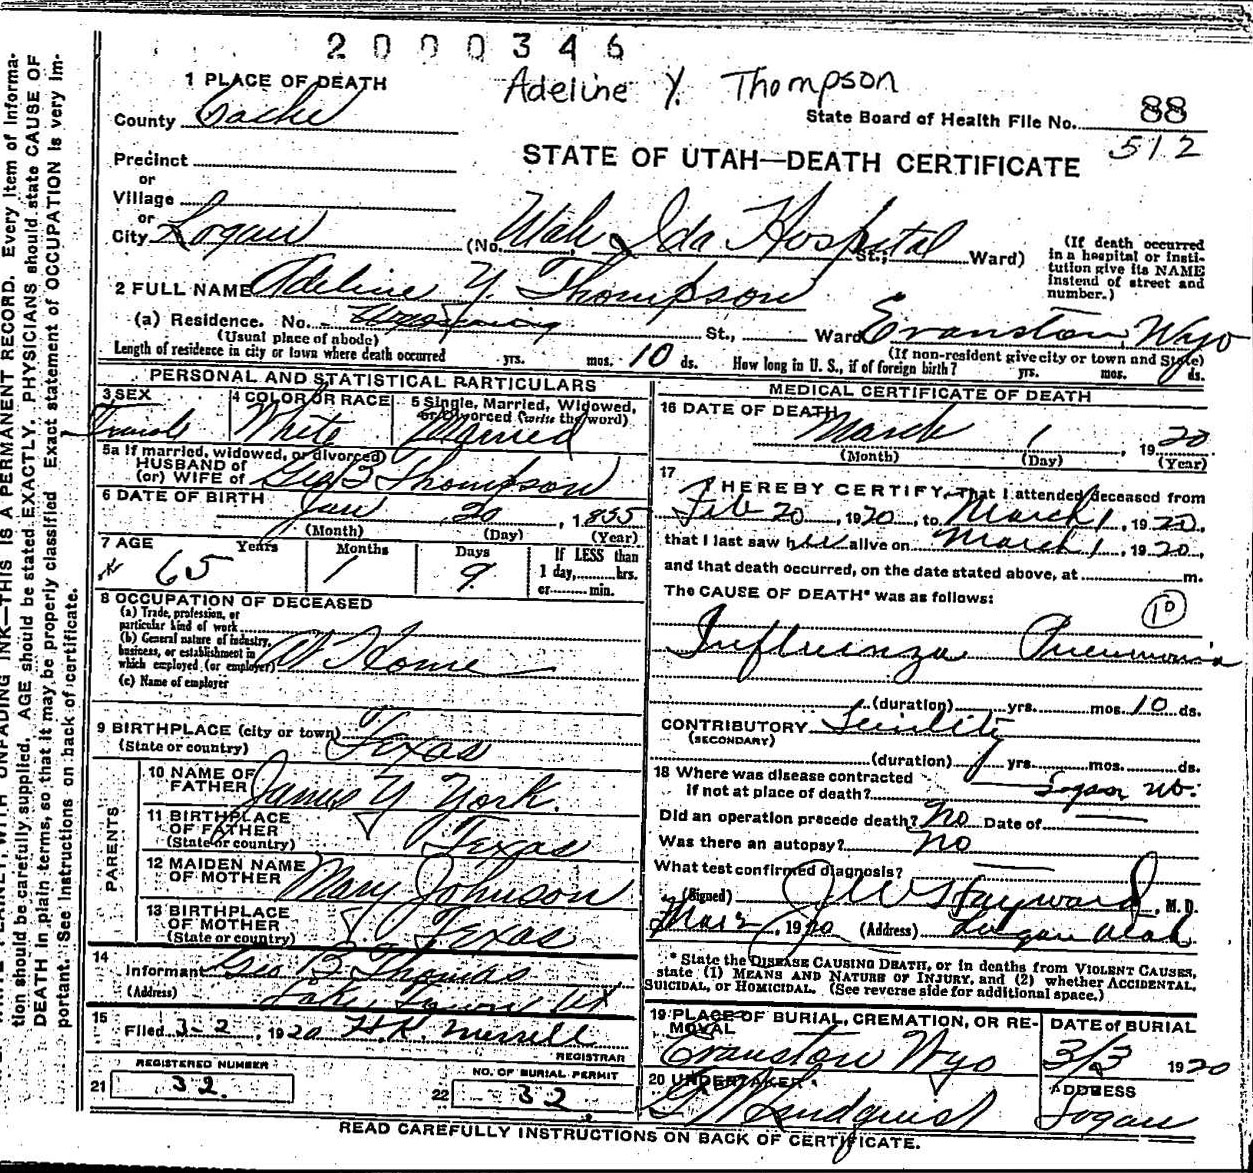 2000346
Adeline Y. Thompson
1 PLACE OF DEATH
County Cache
State Board of Health File No. 88
512
STATE OF UTAH—DEATH CERTIFICATE
Precinct
or
Village
or
City Logan (No. Utah Ida Hospital St.; Ward)
(If death occurred in a hospital or institution give its NAME instead of street and number.)
2 FULL NAME Adeline Y. Thompson
(a) Residence. No. - Wyoming St., Ward Evanston, Wyo
(Usual place of abode) (If non-resident give city or town and State)
Length of residence in city or town where death occurred yrs. mos. 10 ds. How long in U. S., if of foreign birth? yrs. mos. ds.
PERSONAL AND STATISTICAL PARTICULARS
3 SEX 4 COLOR OR RACE 5 Single, Married, Widowed, or Divorced (write the word)
Female White Married
5a If married, widowed, or divorced
HUSBAND of
(or) WIFE of Geo B Thompson
6 DATE OF BIRTH Jan 20, 1855
(Month) (Day) (Year)
7 AGE Years Months Days If LESS than 1 day, hrs. or min.
65 1 9
8 OCCUPATION OF DECEASED
(a) Trade, profession, or particular kind of work
(b) General nature of industry, business, or establishment in which employed (or employer) At Home
(c) Name of employer
9 BIRTHPLACE (city or town) Texas
(State or country)
PARENTS
10 NAME OF FATHER James Y York.
11 BIRTHPLACE OF FATHER Texas
(State or country)
12 MAIDEN NAME OF MOTHER Mary Johnson
13 BIRTHPLACE OF MOTHER Texas
(State or country)
14 Informant Geo B Thomas
(Address)
15 Filed 3-2, 1920 H.K. Merrill
REGISTRAR
REGISTERED NUMBER NO. OF BURIAL PERMIT
21 32. 22 32.
MEDICAL CERTIFICATE OF DEATH
16 DATE OF DEATH
March 1, 1920
(Month) (Day) (Year)
17 I HEREBY CERTIFY, That I attended deceased from
Feb 20, 1920, to March 1, 1920,
that I last saw her alive on March 1, 1920,
and that death occurred, on the date stated above, at m.
The CAUSE OF DEATH* was as follows:
10
Influenza Pneumonia
(duration) yrs. mos. 10 ds.
CONTRIBUTORY Senility
(SECONDARY)
(duration) yrs. mos. ds.
18 Where was disease contracted
if not at place of death? Logan Ut.
Did an operation precede death? No Date of
Was there an autopsy? No
What test confirmed diagnosis?
(Signed) J W Hayward, M. D.
Mar 2, 1920 (Address) Logan Utah
* State the DISEASE CAUSING DEATH, or in deaths from VIOLENT CAUSES,
state (1) MEANS AND NATURE OF INJURY, and (2) whether ACCIDENTAL,
SUICIDAL, or HOMICIDAL. (See reverse side for additional space.)
19 PLACE OF BURIAL, CREMATION, OR REMOVAL DATE of BURIAL
Evanston Wyo 3/3 1920
20 UNDERTAKER ADDRESS
Lindquist Logan
READ CAREFULLY INSTRUCTIONS ON BACK OF CERTIFICATE.
WRITE PLAINLY, WITH UNFADING INK—THIS IS A PERMANENT RECORD. Every item of information should be carefully supplied. AGE should be stated EXACTLY. PHYSICIANS should state CAUSE OF DEATH in plain terms, so that it may be properly classified. Exact statement of OCCUPATION is very important. See instructions on back of certificate.